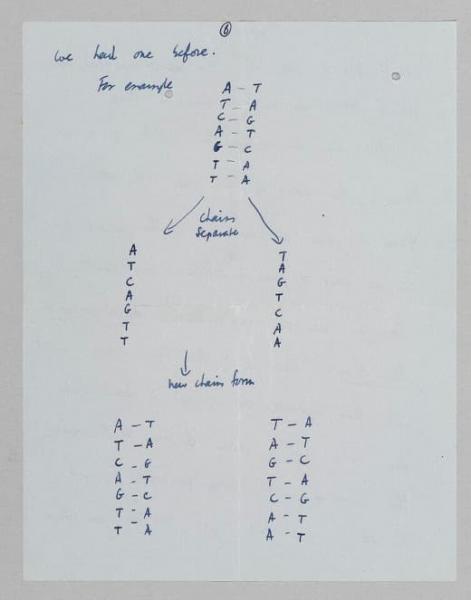 6
we had one before.
For example
A - T
T - A
C - G
A - T
G - C
T - A
T - A
Chains
separate
A
T
C
A
G
T
T
T
A
G
T
C
A
A
new chains form
A - T
T - A
C - G
A - T
G - C
T - A
T - A
T - A
A - T
G - C
T - A
C - G
A - T
A - T